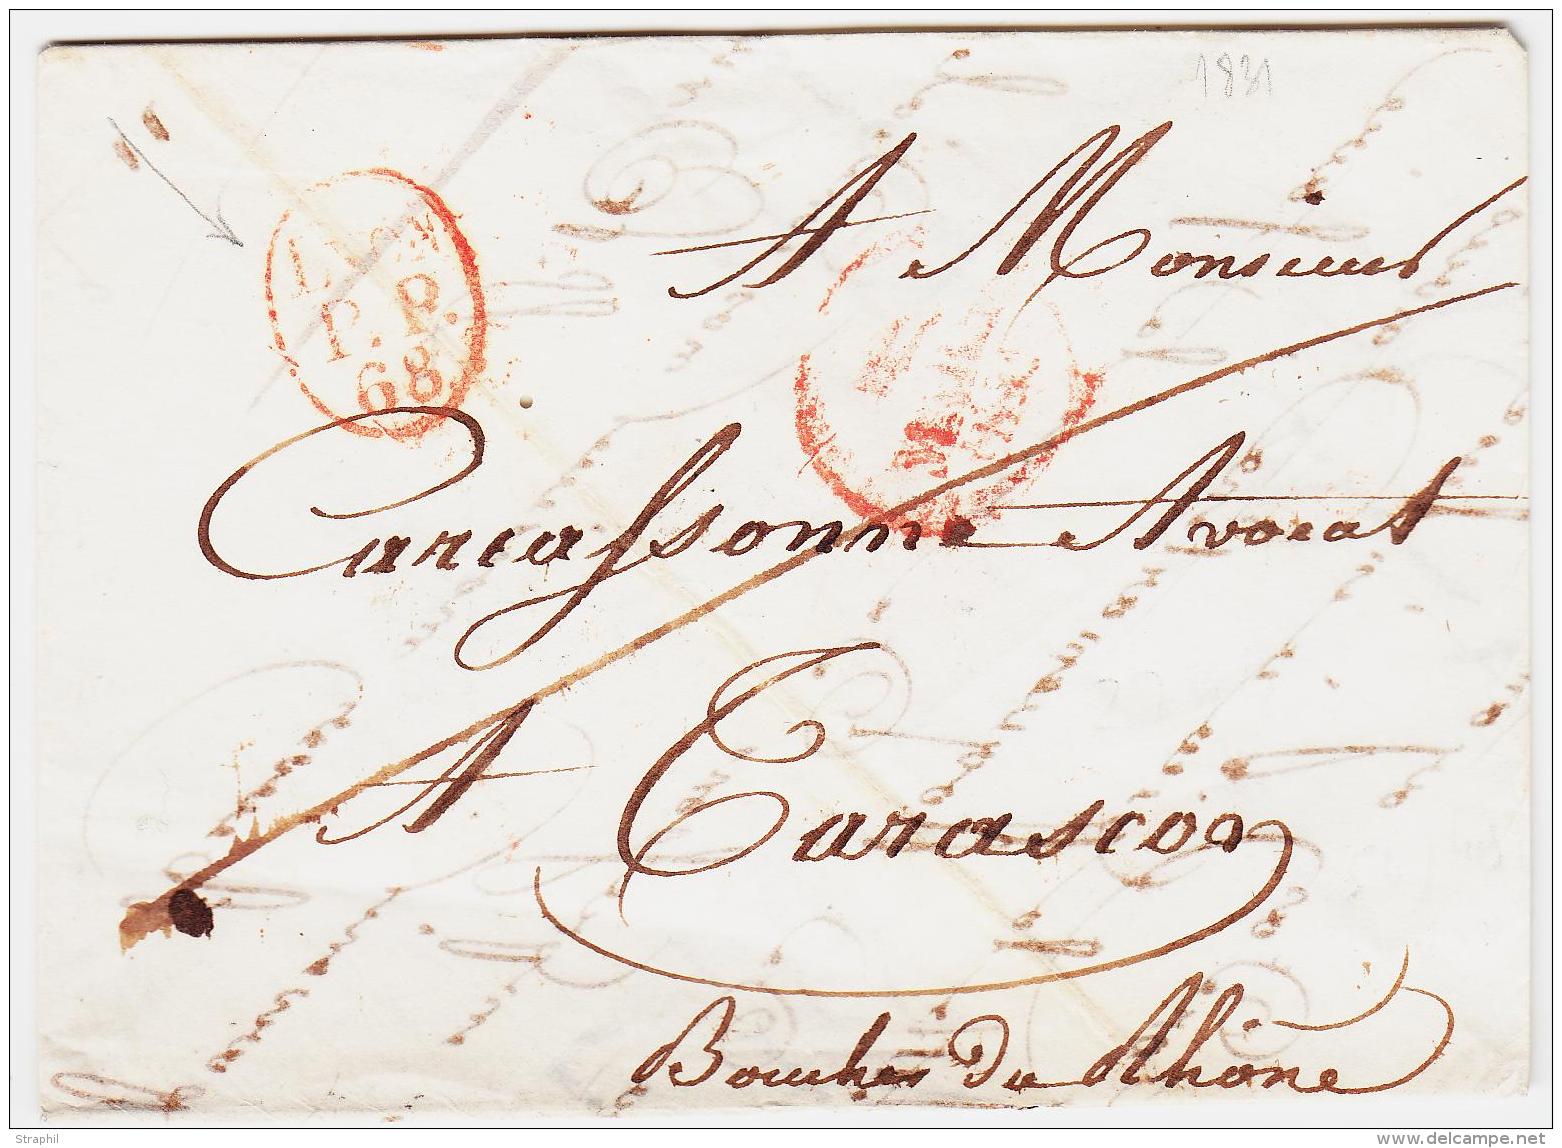 1831
A Monsieur
LYON
P. P.
68
Carcassonne Avocat
A Tarascon
Bouches Du Rhône
Straphil
delcampe.net